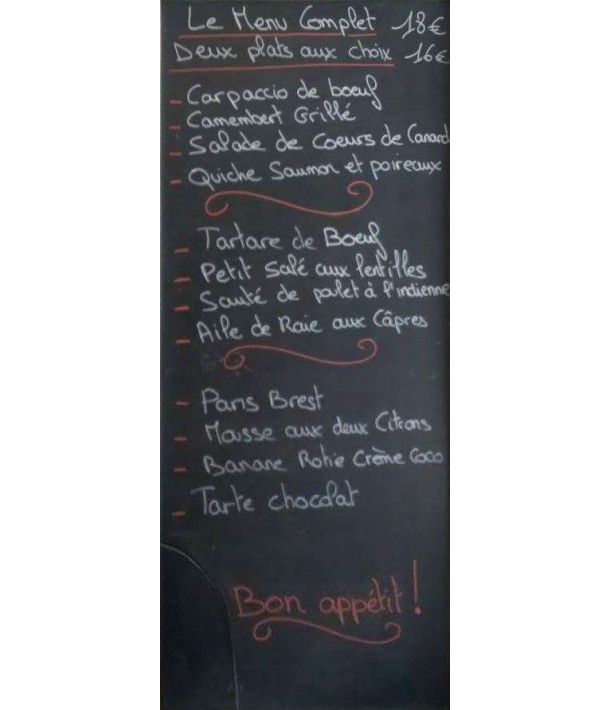 Le Menu Complet 18€
Deux plats aux choix 16€
- Carpaccio de boeuf
- Camembert Grillé
- Salade de Coeurs de Canard
- Quiche Saumon et poireaux
- Tartare de Boeuf
- Petit Salé aux lentilles
- Sauté de poulet à l'indienne
- Aile de Raie aux Câpres
- Paris Brest
- Mousse aux deux Citrons
- Banane Rotie Crème Coco
- Tarte chocolat
Bon appétit !